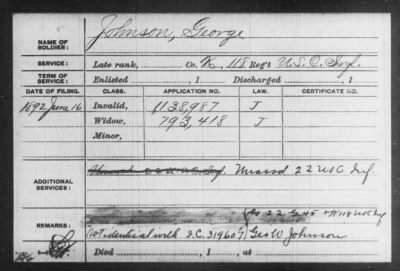 NAME OF SOLDIER: Johnson, George
SERVICE: Late rank, Co. K, 118 Reg't U.S.C. Inf.
TERM OF SERVICE: Enlisted , 1 Discharged , 1
DATE OF FILING. CLASS. APPLICATION NO. LAW. CERTIFICATE NO.
1892 June 16 Invalid, 1138,987 J
Widow, 793,418 J
Minor,
ADDITIONAL SERVICES: Unassd 22 USC Inf.
REMARKS:
Not identical with S.C. 319607, Geo W Johnson
Died , 1 , at